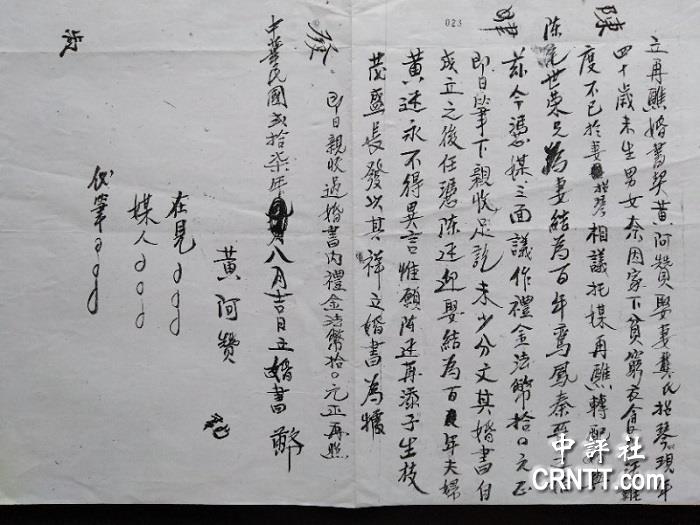 立再醮婚書契黄阿贊娶妻龔氏招琴現年
四十歲未生男女奈因家下貧窮衣食難
度不已於妻招琴相議托媒再醮轉配與
陳 世榮兄為妻結為百年鸞鳳秦晋
兹今憑媒三面議作禮金法幣拾〇元正
即日筆下親收足訖未少分文其婚書自
成立之後任憑陳迎娶結為百年夫婦
黄 永不得異言惟願陳 再添子生枝
茂盛長發其祥立婚書為據
即日親收過婚書内禮金法幣拾〇元正再照
中華民國弍拾柒年八月吉日立婚書
黄阿贊
在見
媒人
代筆
陳
023
中評社
CRNTT.com